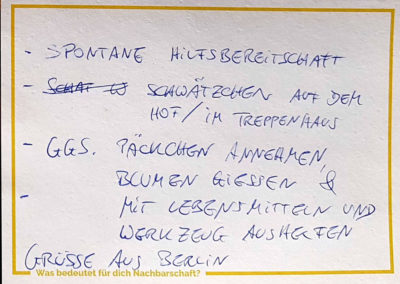 - SPONTANE HILFSBEREITSCHAFT
- SCHWÄTZCHEN AUF DEM
HOF/IM TREPPENHAUS
- GGS. PÄCKCHEN ANNEHMEN,
BLUMEN GIESSEN &
- MIT LEBENSMITTELN UND
WERKZEUG AUSHELFEN
GRÜSSE AUS BERLIN
Was bedeutet für dich Nachbarschaft?